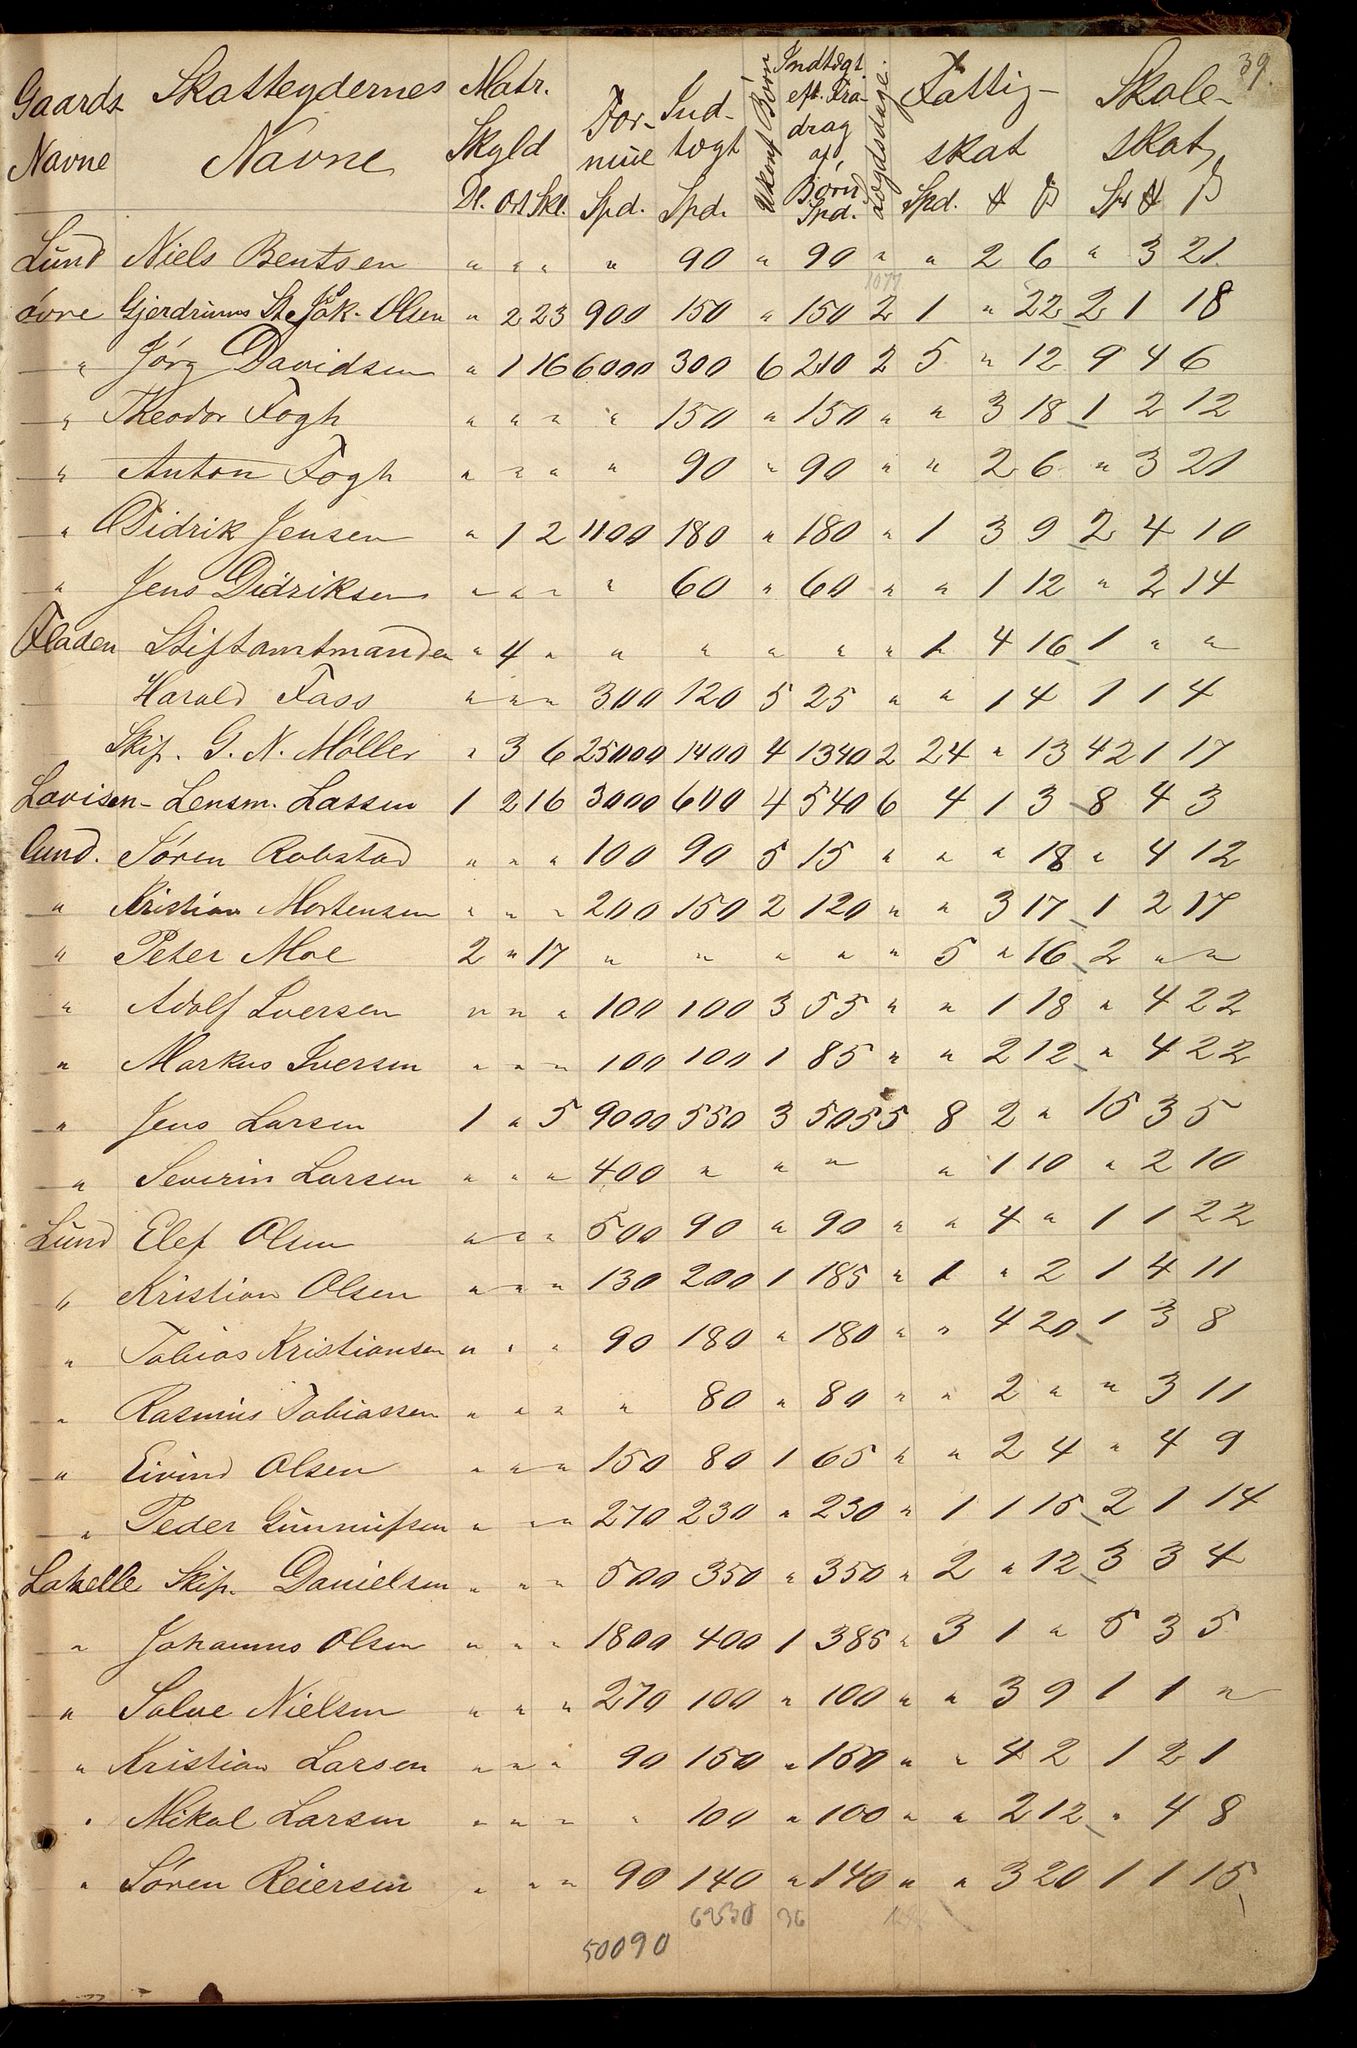 39.
Gaards Navne Skatteydernes Navne Matr. Skyld Dl. Ort Skl. Formue Spd. Indtægt Spd. Ukonf. Børn Indtægt eft. Fradrag af Børn Spd. Lægdsdage. Fattigskat Spd. Skoleskat
Lund Niels Bentsen " " " " 90 " 90 " " 2 6 " 3 21
øvre Gjerdrums St. Jak. Olsen " 2 23 900 150 " 150 2 1 " 22 2 1 18
" Jörg Davidsen " 1 16 6000 300 6 210 2 5 " 12 9 4 6
" Theodor Fogh " " " " 150 " 150 " " 3 18 1 2 12
" Anton Fogh " " " " 90 " 90 " " 2 6 " 3 21
" Didrik Jensen " 1 2 1100 180 " 180 " 1 3 9 2 4 10
" Jens Didriksen " " " " 60 " 60 " " 1 12 " 2 14
Fladen Stiftamtmanden " 4 " " " " " " 1 4 16 1 " "
Harald Fass " " " 300 120 5 25 " " 1 4 1 1 4
Skip. G. N. Möller " 3 6 25000 1400 4 1340 2 24 " 13 42 1 17
Lovisen- Lensm. Lassen 1 2 16 3000 600 4 540 6 4 1 3 8 4 3
lund. Søren Robstad " " " 100 90 5 15 " " " 18 " 4 12
" Kristian Mortensen " " " 200 150 2 120 " " 3 17 1 2 17
" Peter Moe 2 " 17 " " " " " 5 " 16 2 " "
" Adolf Iversen " " " 100 100 3 55 " " 1 18 " 4 22
" Markus Iversen " " " 100 100 1 85 " " 2 12 " 4 22
" Jens Larsen 1 " 5 9000 550 3 505 5 8 2 " 15 3 5
" Severin Larsen " " " 400 " " " " 1 10 " 2 10
Lund Elef Olsen " " " 500 90 " 90 " " 4 " 1 1 22
" Kristian Olsen " " " 130 200 1 185 " 1 " 2 1 4 11
" Tobias Kristiansen " " " 90 180 " 180 " " 4 20 1 3 8
" Rasmus Tobiassen " " " " 80 " 80 " " 2 " " 3 11
" Eivind Olsen " " " 150 80 1 65 " " 2 4 " 4 9
" Peder Gunnufsen " " " 270 230 " 230 " 1 1 15 2 1 14
Lahelle Skip. Danielsen " " " 500 350 " 350 " 2 " 12 3 3 4
" Johannes Olsen " " " 1800 400 1 385 " 3 1 " 5 3 5
" Salve Nielsen " " " 270 100 " 100 " " 3 9 1 1 "
" Kristian Larsen " " " 90 150 " 150 " " 4 2 1 2 1
" Mikal Larsen " " " " 100 " 100 " " 2 12 " 4 8
" Søren Reiersen " " " 90 140 " 140 " " 3 20 1 1 15
6230 36
50090